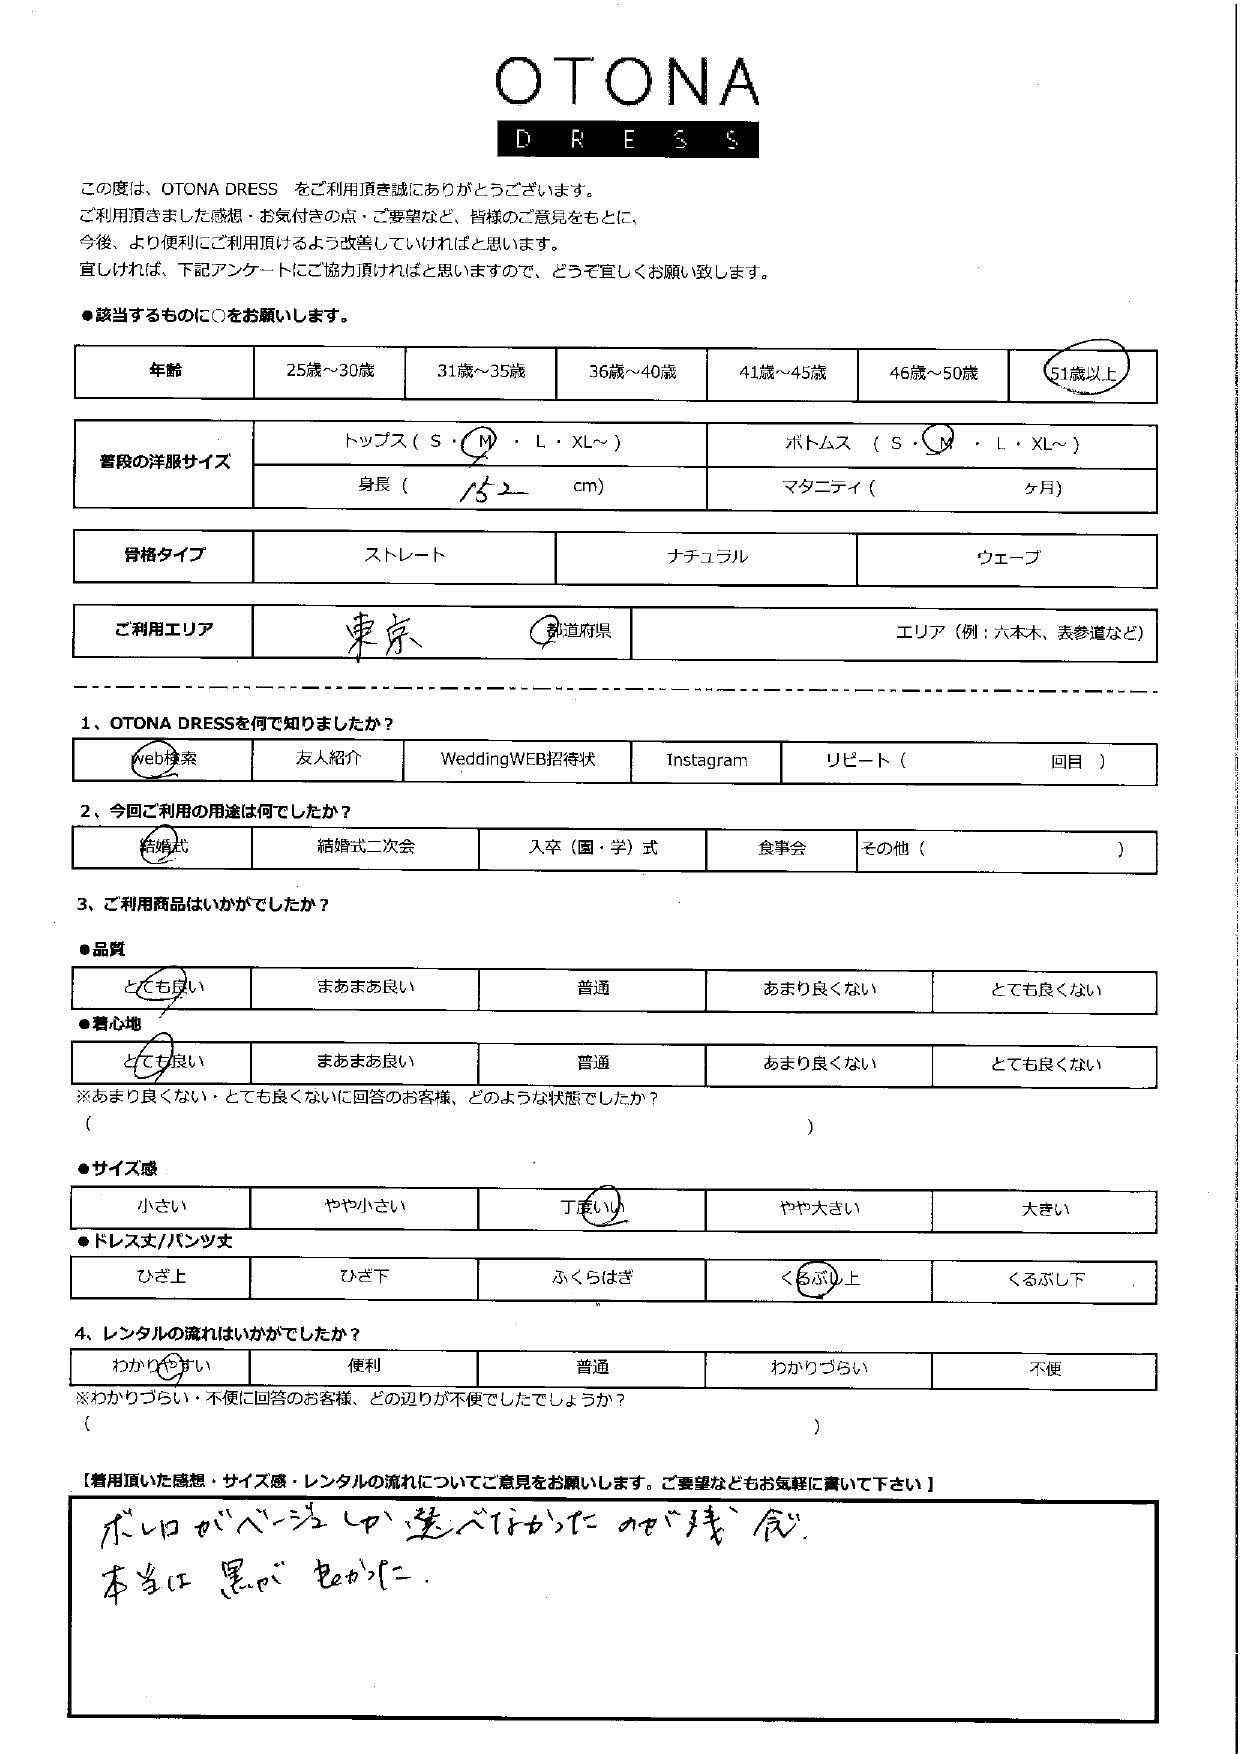 OTONA
DRESS
この度は、OTONA DRESS をご利用頂き誠にありがとうございます。
ご利用頂きました感想・お気付きの点・ご要望など、皆様のご意見をもとに、
今後、より便利にご利用頂けるよう改善していければと思います。
宜しければ、下記アンケートにご協力頂ければと思いますので、どうぞ宜しくお願い致します。
●該当するものに○をお願いします。
年齢 25歳～30歳 31歳～35歳 36歳～40歳 41歳～45歳 46歳～50歳 51歳以上
普段の洋服サイズ
トップス ( S ・ M ・ L ・ XL～ ) ボトムス ( S ・ M ・ L ・ XL～ )
身長 ( 152 cm) マタニティ ( ヶ月)
骨格タイプ ストレート ナチュラル ウェーブ
ご利用エリア 東京 都道府県 エリア（例：六本木、表参道など）
1、OTONA DRESSを何で知りましたか？
web検索 友人紹介 WeddingWEB招待状 Instagram リピート ( 回目 )
2、今回ご利用の用途は何でしたか？
結婚式 結婚式二次会 入卒（園・学）式 食事会 その他 ( )
3、ご利用商品はいかがでしたか？
●品質
とても良い まあまあ良い 普通 あまり良くない とても良くない
●着心地
とても良い まあまあ良い 普通 あまり良くない とても良くない
※あまり良くない・とても良くないに回答のお客様、どのような状態でしたか？
( )
●サイズ感
小さい やや小さい 丁度いい やや大きい 大きい
●ドレス丈/パンツ丈
ひざ上 ひざ下 ふくらはぎ くるぶし上 くるぶし下
4、レンタルの流れはいかがでしたか？
わかりやすい 便利 普通 わかりづらい 不便
※わかりづらい・不便に回答のお客様、どの辺りが不便でしたでしょうか？
( )
【着用頂いた感想・サイズ感・レンタルの流れについてご意見をお願いします。ご要望などもお気軽に書いて下さい 】
ボレロがベージュしか選べなかったのが残念.
本当は黒が良かった.